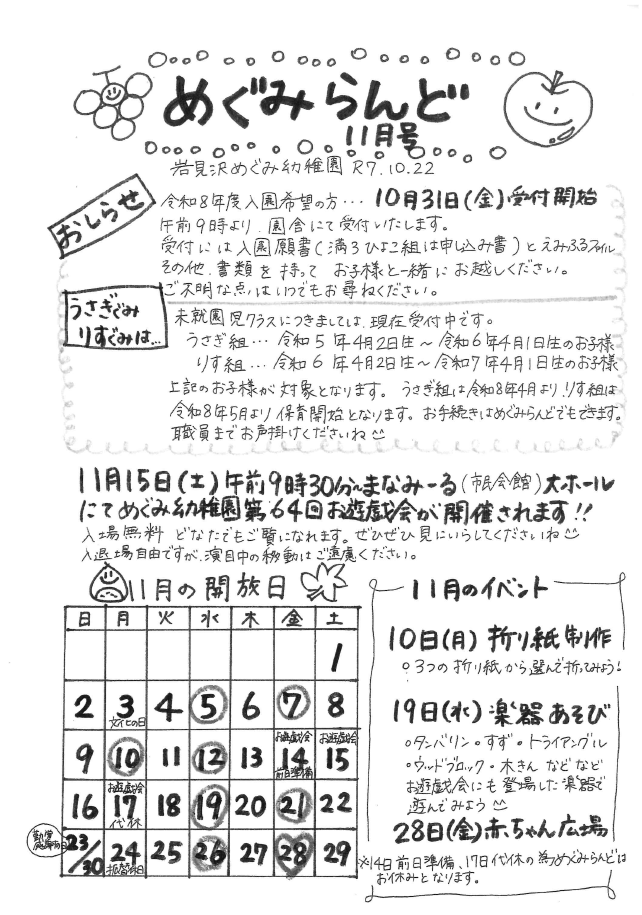 めぐみらんど
11月号
岩見沢めぐみ幼稚園 R7.10.22
おしらせ
令和8年度入園希望の方… 10月31日(金)受付開始
午前9時より、園舎にて受付いたします。
受付には入園願書(満3ひよこ組は申し込み書)とえみふるファイル
その他、書類を持って お子様と一緒にお越しください。
ご不明な点はいつでもお尋ねください。
うさぎぐみ
りすぐみは…
未就園児クラスにつきましては、現在受付中です。
うさぎ組… 令和5年4月2日生〜令和6年4月1日生のお子様
りす組… 令和6年4月2日生〜令和7年4月1日生のお子様
上記のお子様が対象となります。 うさぎ組は令和8年4月より、りす組は
令和8年5月より保育開始となります。お手続きはめぐみらんどでもできます。
職員までお声掛けくださいね
11月15日(土)午前9時30分〜まなみーる(市民会館)大ホール
にてめぐみ幼稚園第64回お遊戯会が開催されます!!
入場無料 どなたでもご覧になれます。ぜひぜひ見にいらしてくださいね
入退場自由ですが、演目中の移動はご遠慮ください。
11月の開放日
日 月 火 水 木 金 土
1
2 3 4 5 6 7 8
文化の日
お遊戯会 お遊戯会
9 10 11 12 13 14 15
前日準備
お遊戯会
16 17 18 19 20 21 22
代休
勤労感謝の日
23/30 24 25 26 27 28 29
振替休日
11月のイベント
10日(月) 折り紙制作
○3つの折り紙から選んで折ってみよう!
19日(水) 楽器あそび
○タンバリン・すず・トライアングル
・ウッドブロック・木きん などなど
お遊戯会にも登場した楽器で
遊んでみよう
28日(金)赤ちゃん広場
※14日前日準備、17日代休の為めぐみらんどは
お休みとなります。